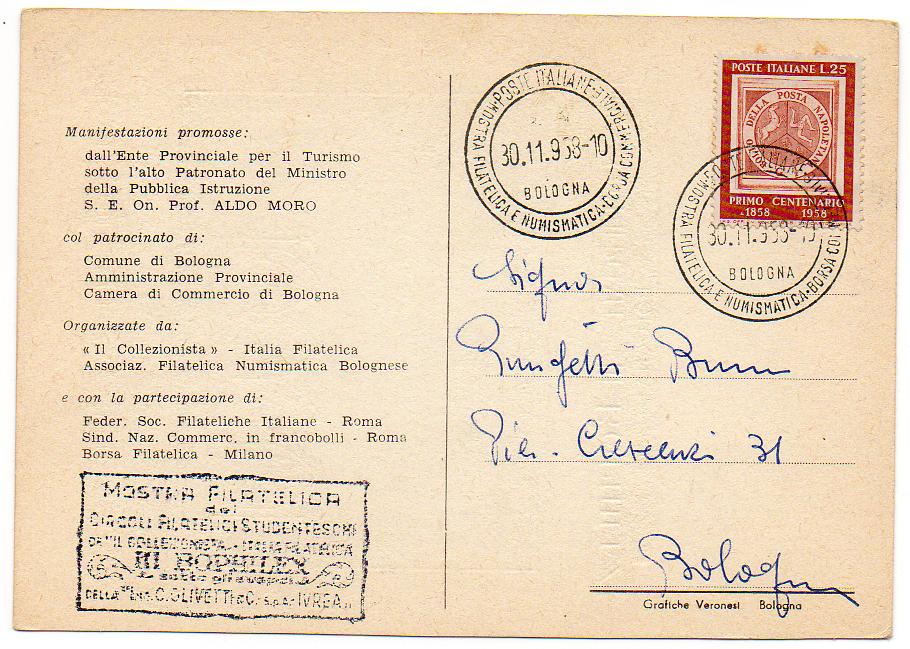 Manifestazioni promosse:
dall'Ente Provinciale per il Turismo
sotto l'alto Patronato del Ministro
della Pubblica Istruzione
S. E. On. Prof. ALDO MORO
col patrocinato di:
Comune di Bologna
Amministrazione Provinciale
Camera di Commercio di Bologna
Organizzate da:
« Il Collezionista » - Italia Filatelica
Associaz. Filatelica Numismatica Bolognese
e con la partecipazione di:
Feder. Soc. Filateliche Italiane - Roma
Sind. Naz. Commerc. in francobolli - Roma
Borsa Filatelica - Milano
MOSTRA FILATELICA
dei
CIRCOLI FILATELICI STUDENTESCHI
DE "IL COLLEZIONISTA - ITALIA FILATELICA
III BOPHILEX
sotto gli auspici
DELLA "ING. C. OLIVETTI & C. S.p.A. IVREA"
POSTE ITALIANE
MOSTRA FILATELICA E NUMISMATICA - BORSA COMMERCIALE
30.11.958-10
BOLOGNA
POSTE ITALIANE L.25
DELLA POSTA NAPOLETANA
BOLLO
PRIMO CENTENARIO
1858 1958
MOSTRA FILATELICA E NUMISMATICA - BORSA
30.11.958-10
BOLOGNA
Signor
Bruno
Crescenzi 31
Bologna
Grafiche Veronesi Bologna